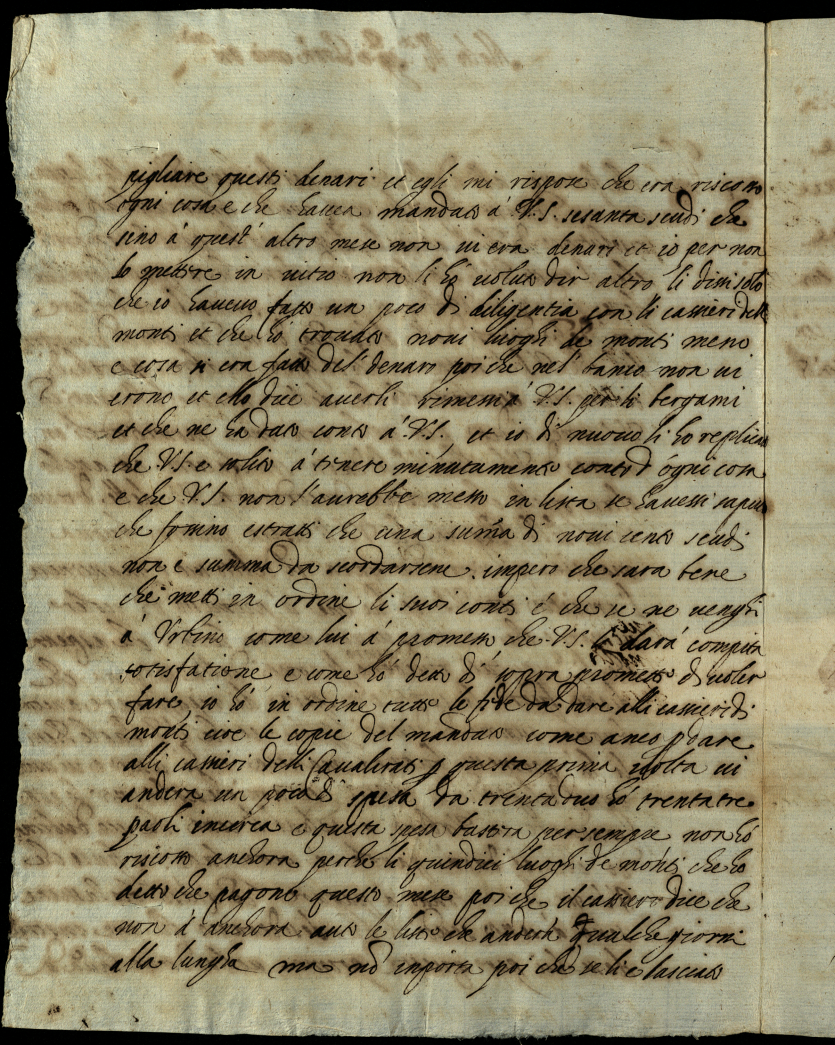 pigliare questi denari et egli mi rispose che era riscosso
ogni cosa e che havea mandato á V.S. sesanta scudi che
sino á quest' altro mese non vi era denari et io per non
lo mettre in vitio non li hó voluto dir altro li dissi solo
che io havevo fatto un poco di diligentia con li cassieri delli
monti et che hó trovato novi luoghi de monti meno
e cosa si era fatto del denaro poi che nel banco non vi
erono et ello dice averli rimessi á V.S. per li bergami
et che ne ha dato conto á V.S., et io di nuovo li ho replicato
che V.S. e solito á tenere minutamente conto d'ogni cosa
e che V.S. non l'aurebbe messo in lista se havessi saputo
che fossino estratti che una summa di novi cento scudi
non e summa da scordarsene. impero che sara bene
che metti in ordine li suoi conti é che se ne venghi
á Urbino come lui á promesso che V.S. dará compita
sotisfatione e come hó detto di sopra promette di voler
fare, io hó in ordine tutte le fide da dare alli cassieri di
monti cioe le copie del mandato come anco p dare
alli cassieri delli Cavalirati p questa prima volta vi
andera un poco di spesa da trenta duo hó trentatre
paoli incirca e questa spesa bastra per sempre non hó
riscosso anchora perche li quindici luoghi de monti che ho
detto che pagono questo mese poi che il cassiero dice che
non á anchora auto le liste che anderá qualche giorni
alla lungha ma nō inporta poi che se li e lasciato